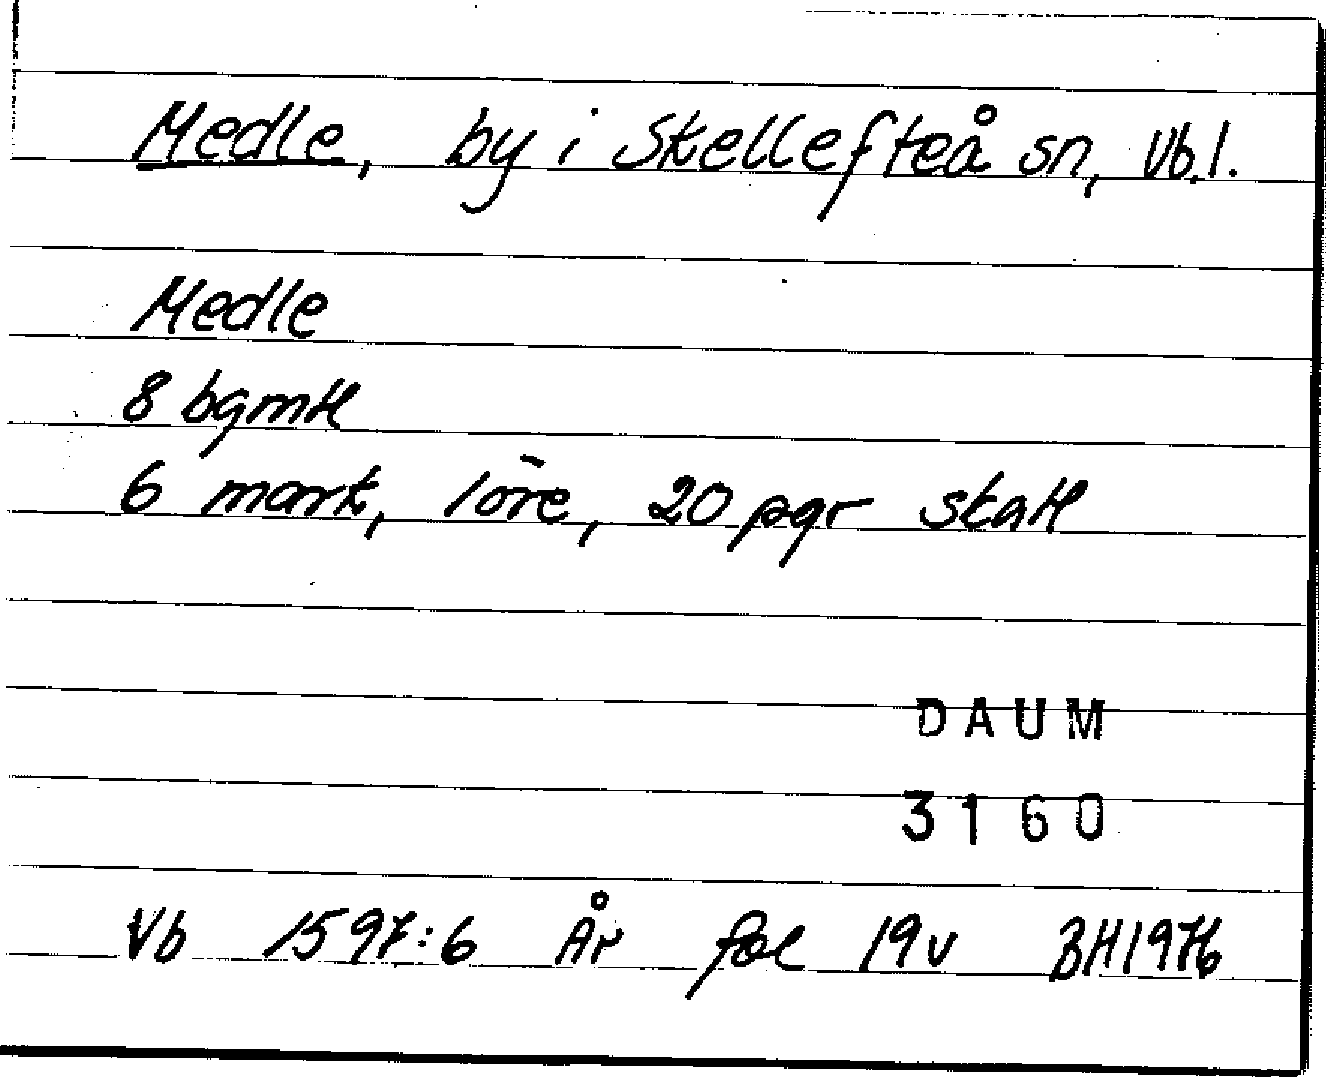 Medle, by i Skellefteå sn, Vb.l.
Medle
8 bgmtl
6 mark, 1 öre, 20 pgr skatt
DAUM
3160
Vb 1597:6 År fol 19v BH1976